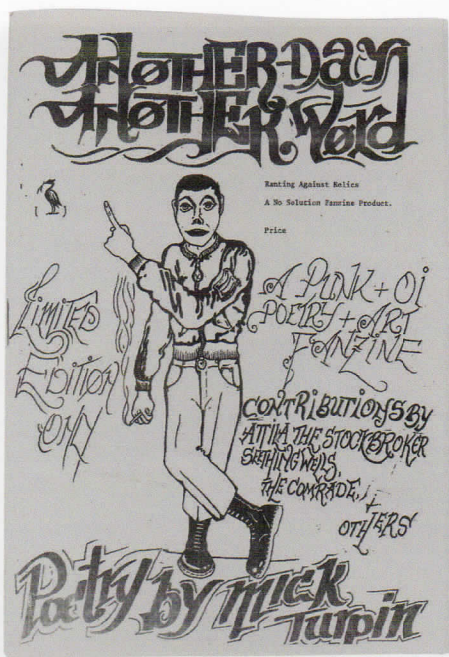 ANOTHER DAY
ANOTHER WORD
Ranting Against Relics
A No Solution Fanzine Product.
Price
LIMITED
EDITION
ONLY
A PUNK + OI
POETRY + ART
FANZINE
CONTRIBUTIONS BY
ATTILA THE STOCKBROKER
SEETHING WELLS,
THE COMRADE,
+
OTHERS
Poetry by Mick
Turpin